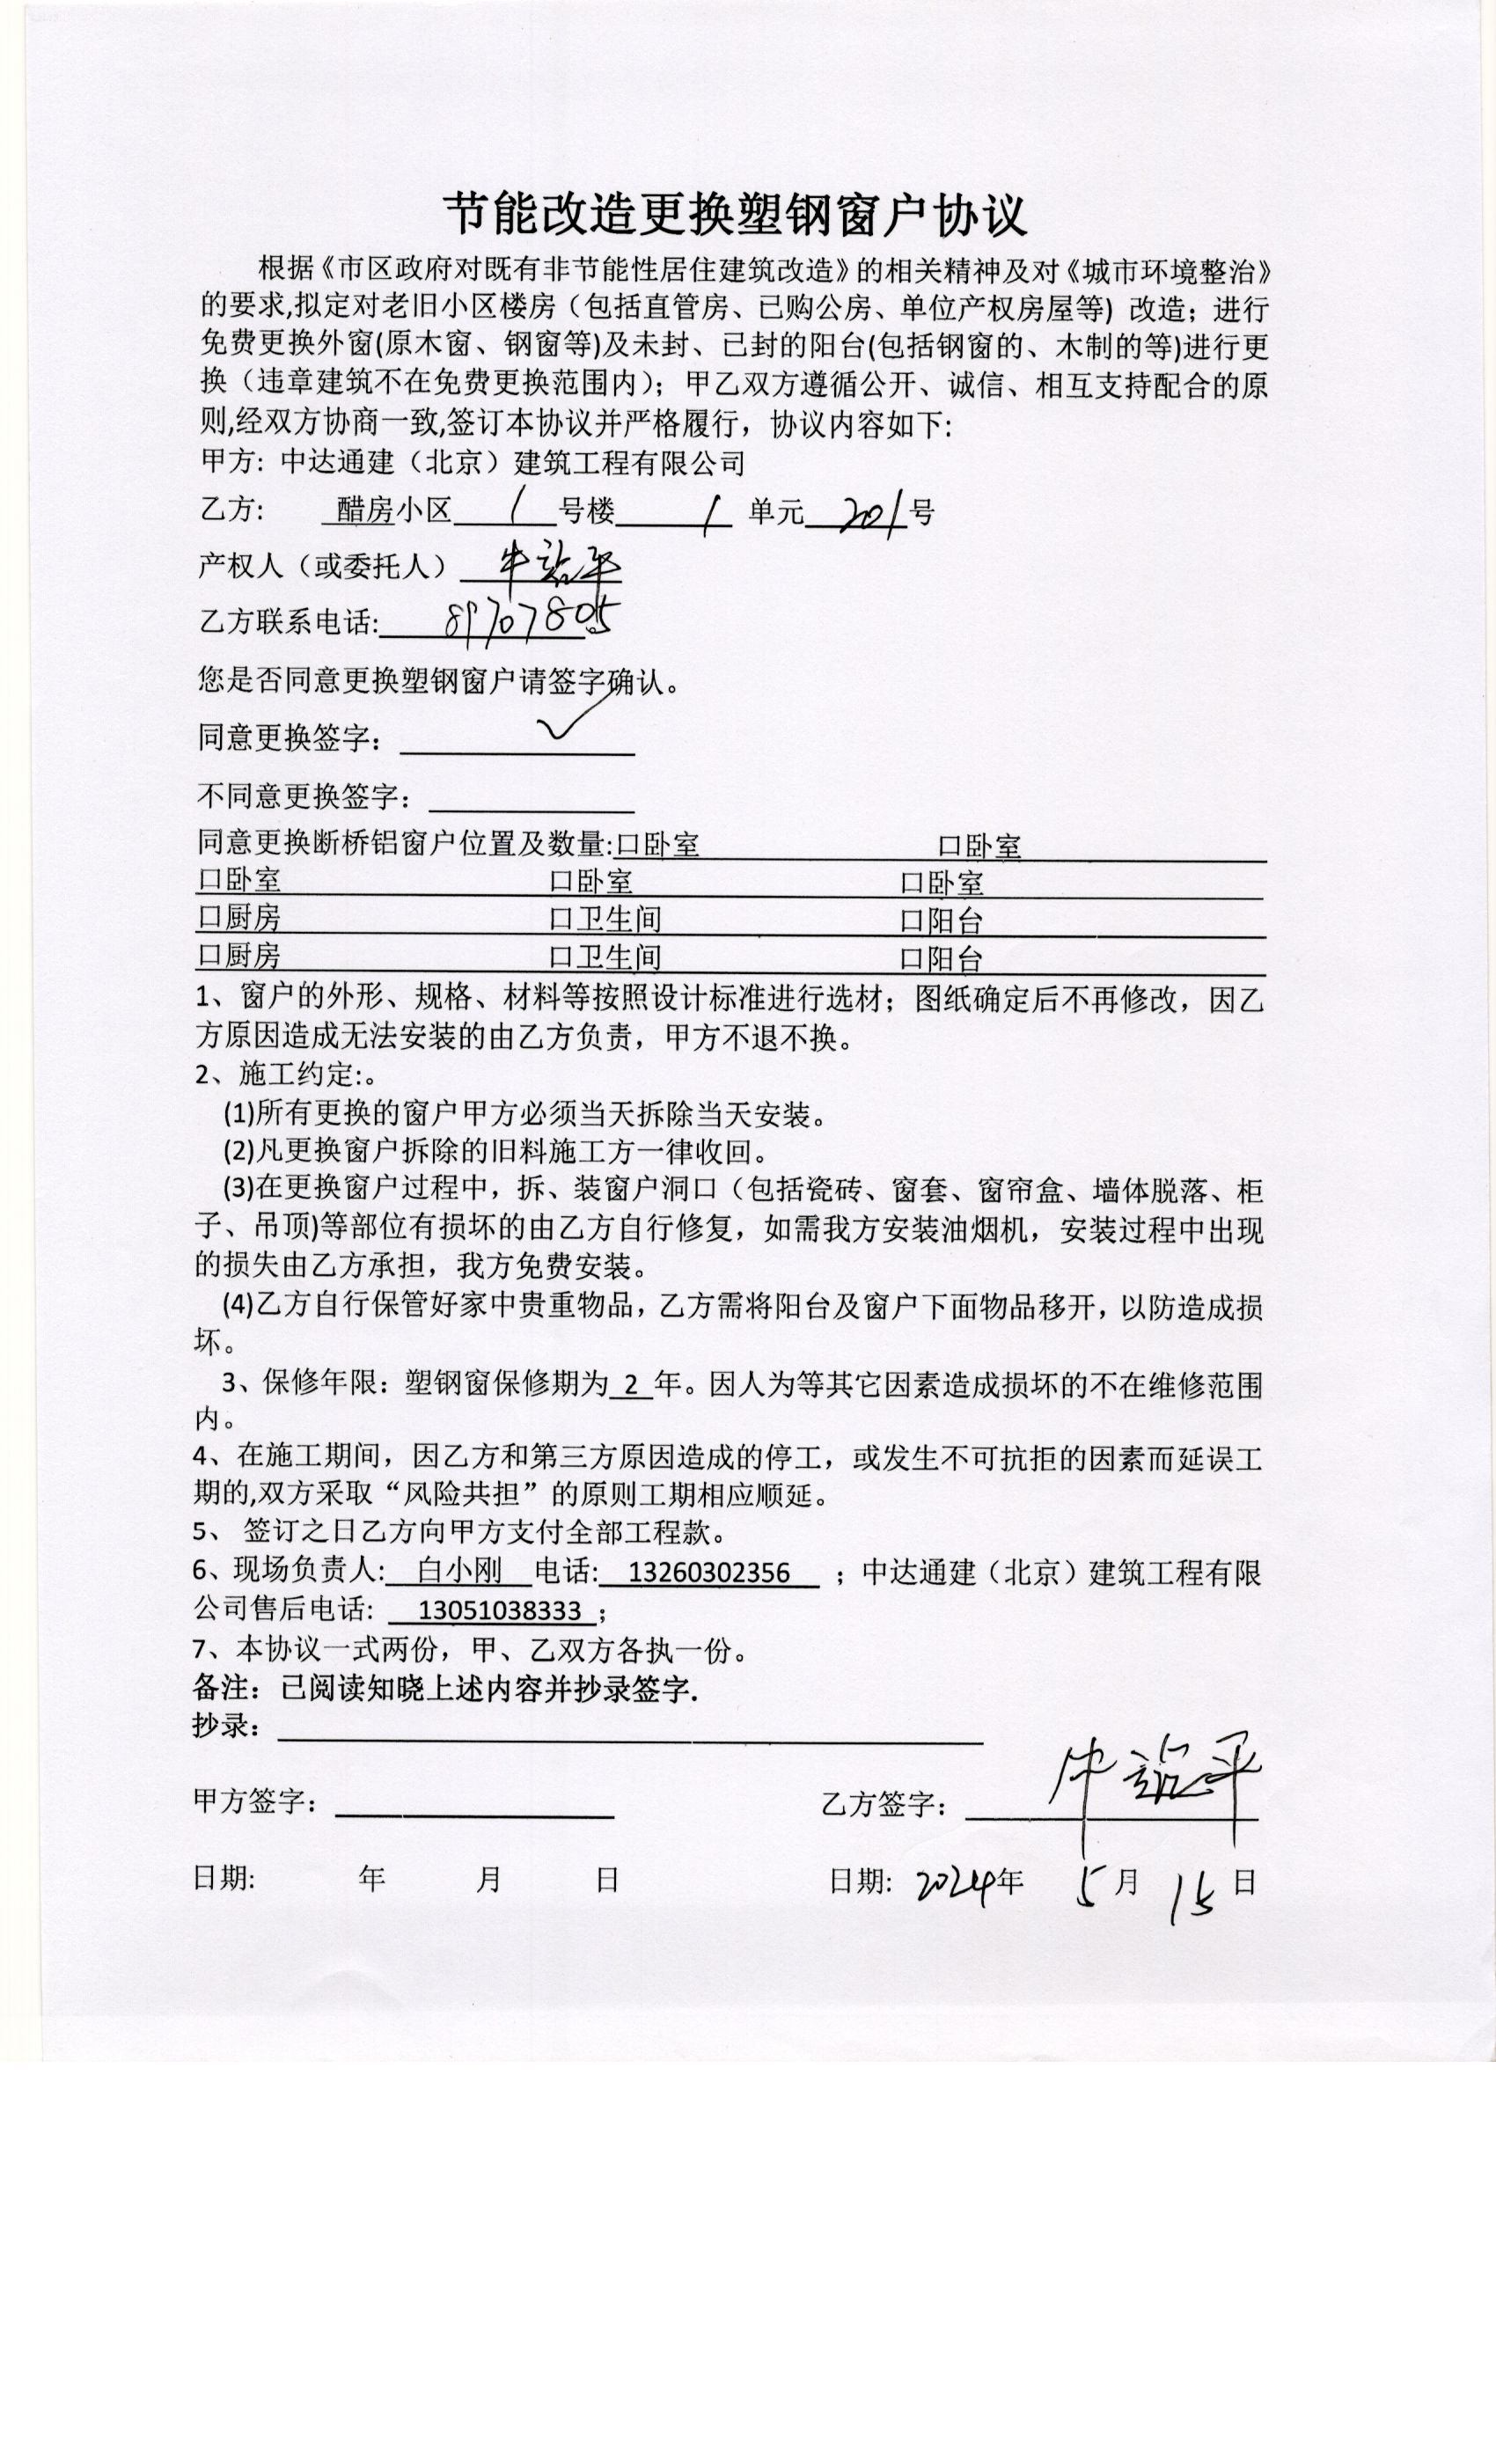 节能改造更换塑钢窗户协议
根据《市区政府对既有非节能性居住建筑改造》的相关精神及对《城市环境整治》
的要求,拟定对老旧小区楼房（包括直管房、已购公房、单位产权房屋等) 改造；进行
免费更换外窗(原木窗、钢窗等)及未封、已封的阳台(包括钢窗的、木制的等)进行更
换（违章建筑不在免费更换范围内）；甲乙双方遵循公开、诚信、相互支持配合的原
则,经双方协商一致,签订本协议并严格履行，协议内容如下:
甲方: 中达通建（北京）建筑工程有限公司
乙方: 醋房小区 1 号楼 1 单元 201 号
产权人（或委托人） 牛 平
乙方联系电话: 89707805
您是否同意更换塑钢窗户请签字确认。
同意更换签字： ✓
不同意更换签字：
同意更换断桥铝窗户位置及数量:口卧室 口卧室
口卧室 口卧室 口卧室
口厨房 口卫生间 口阳台
口厨房 口卫生间 口阳台
1、窗户的外形、规格、材料等按照设计标准进行选材；图纸确定后不再修改，因乙
方原因造成无法安装的由乙方负责，甲方不退不换。
2、施工约定:。
(1)所有更换的窗户甲方必须当天拆除当天安装。
(2)凡更换窗户拆除的旧料施工方一律收回。
(3)在更换窗户过程中，拆、装窗户洞口（包括瓷砖、窗套、窗帘盒、墙体脱落、柜
子、吊顶)等部位有损坏的由乙方自行修复，如需我方安装油烟机，安装过程中出现
的损失由乙方承担，我方免费安装。
(4)乙方自行保管好家中贵重物品，乙方需将阳台及窗户下面物品移开，以防造成损
坏。
3、保修年限：塑钢窗保修期为 2 年。因人为等其它因素造成损坏的不在维修范围
内。
4、在施工期间，因乙方和第三方原因造成的停工，或发生不可抗拒的因素而延误工
期的,双方采取“风险共担”的原则工期相应顺延。
5、 签订之日乙方向甲方支付全部工程款。
6、现场负责人: 白小刚 电话: 13260302356 ；中达通建（北京）建筑工程有限
公司售后电话: 13051038333 ；
7、本协议一式两份，甲、乙双方各执一份。
备注：已阅读知晓上述内容并抄录签字.
抄录：
甲方签字： 乙方签字： 牛 平
日期: 年 月 日 日期: 2024年 5月 15日